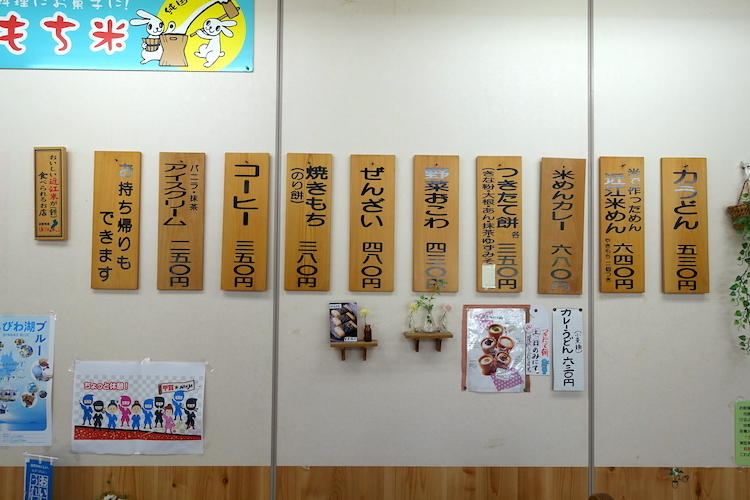 料理にお菓子に!
もち米
純国
力うどん 五三〇円
米で作っためん
近江米めん 六四〇円
やきもち二個つき
米めんカレー 六八〇円
つきたて餅 各三五〇円
野菜おこわ 四三〇円
ぜんざい 四八〇円
焼きもち 三八〇円
(のり餅)
コーヒー 三五〇円
バニラ・抹茶
アイスクリーム 二五〇円
お持ち帰りも
できます
おいしい近江米が
食べられるお店
カレーうどん 六三〇円
土、日のみです
びわ湖
ブルー
ちょっと休憩!
甲賀